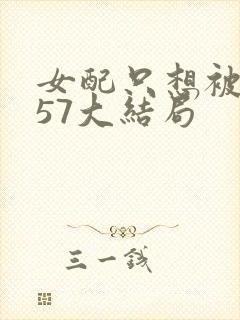 女配只想被
57大结局
三一钱